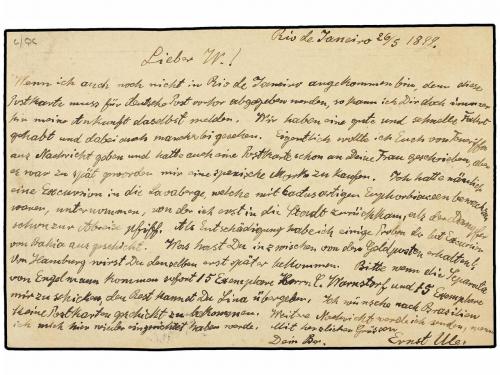 c/QC
Rio de Janeiro 26/5 1899.
Lieber W.!
Wenn ich auch noch nicht in Rio de Janeiro angekommen bin, denn diese
Postkarte muss für deutsche Post vorher abgegeben werden, so kann ich Dir doch immer
hin meine Ankunft daselbst melden. Wir haben eine gute und schnelle Fahrt
gehabt und dabei auch mancherlei gesehen. Eigentlich wollte ich Euch von
aus Nachricht geben und hatte auch eine Postkarte schon an Deine Frau geschrieben, aber
es war zu spät geworden mir eine spanische Marke zu kaufen. Ich hatte nämlich
eine Excursion in die Lavaberge, welche mit Cactusartigen Euphorbiaceen bewachsen
waren, unternommen, von der ich erst in die Stadt zurückkam, als der Dampfer
schon zur Abreise pfiff. Als Entschädigung habe ich einige Proben der let Excursion
von Bahia aus geschickt. Was hast Du inzwischen von den erhalten?
Von Hamburg wirst Du denselben erst später bekommen. Bitte wenn die Separata
von Engelmann kommen sofort 15 Exemplare Herrn C. Warnstorf und 15 Exemplare
mir zu schicken, den Rest kannst Du Lina übergeben. Ich wünsche nach Brasilien
keine Postkarten geschickt zu bekommen. Weitre Nachricht werde ich senden, wenn
ich mich hier wieder eingerichtet haben werde. Mit herzlichen Grüssen
Dein Br. Ernst Ule.